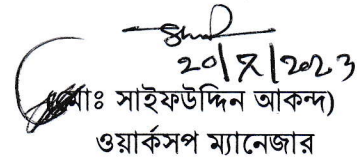 20/8/2023
মোঃ সাইফউদ্দিন আকন্দ)
ওয়ার্কসপ ম্যানেজার